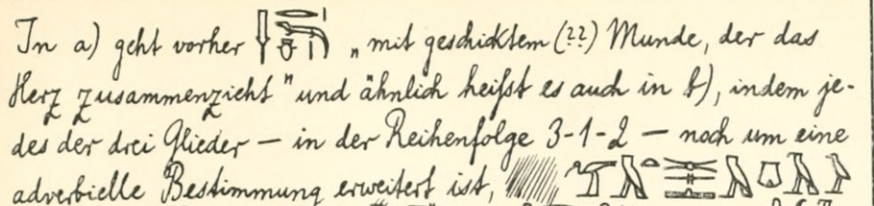 In a) geht vorher „mit geschicktem (??) Munde, der das
Herz zusammenzieht" und ähnlich heißt es auch in b), indem je-
des der drei Glieder — in der Reihenfolge 3-1-2 — noch um eine
adverbielle Bestimmung erweitert ist,